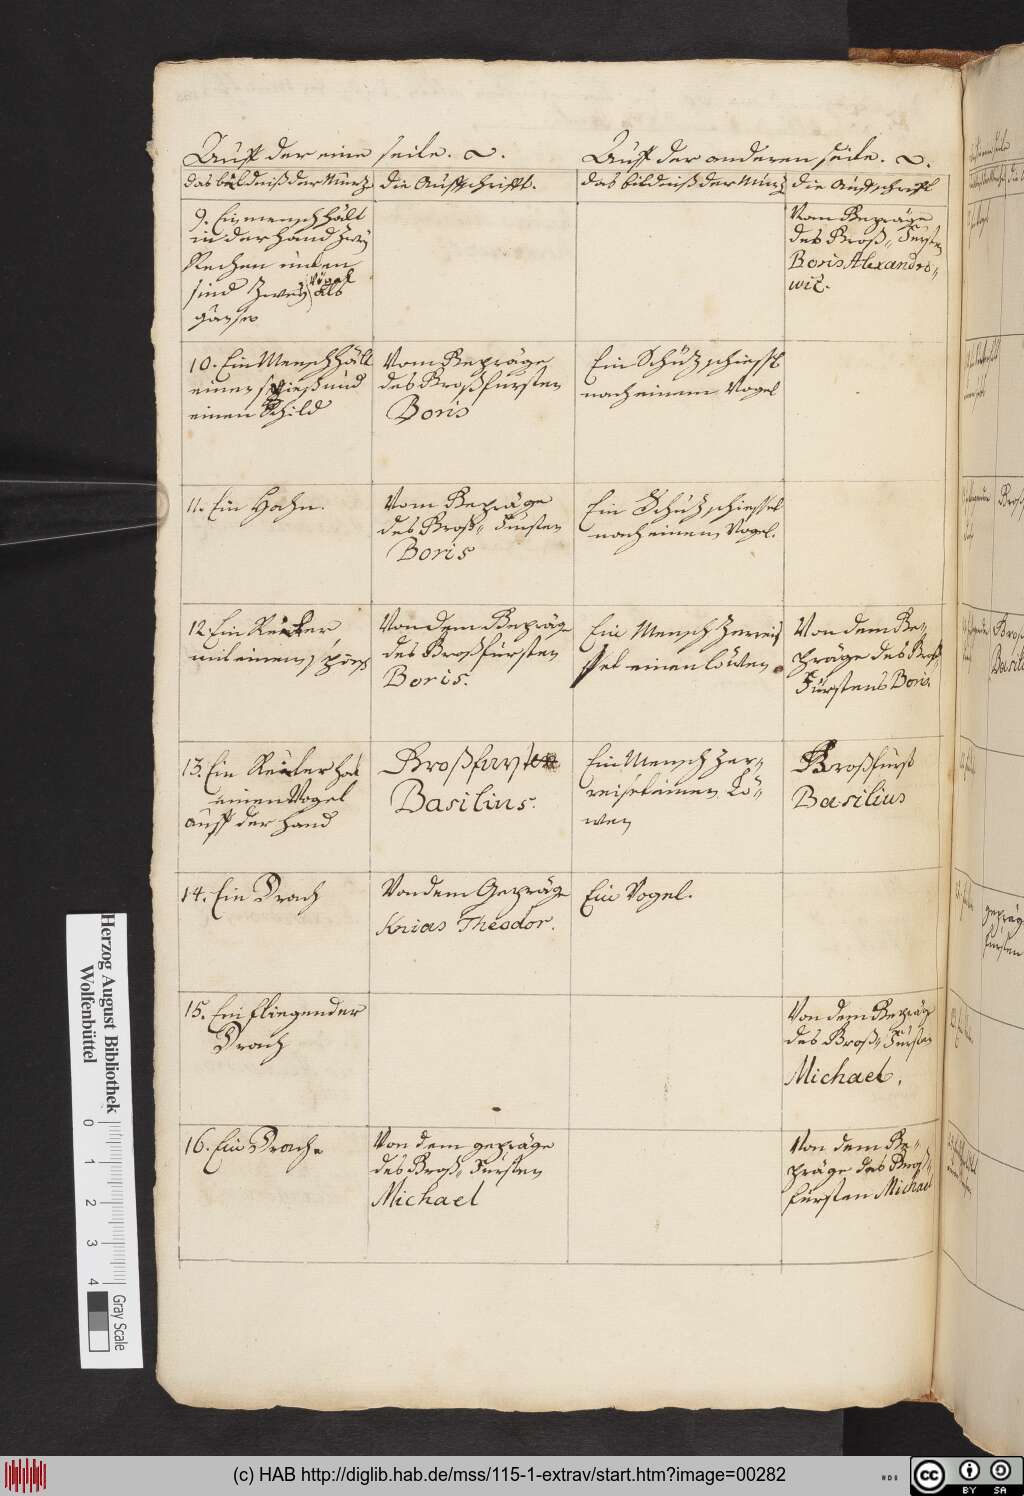 Auff der eine seite.
Auff der anderen seite.
das bildniß der Müntz
die Auffschrifft.
das bildniß der Müntz
die Auffschrifft
9. Ein mensch hält
in der hand zwey
Rechen unten
sind zwey Vögel als
gänse
Vom Gepräge
des Groß- Fürsten
Boris Alexandro-
wic.
10. Ein Mensch hält
einen spieß und
einen Schild
Vom Gepräge
des Großfürsten
Boris
Ein Schütz schiesset
nach einem Vogel
11. Ein Hahn.
Vom Gepräge
des Groß- Fürsten
Boris
Ein Schütz schiesset
nach einen Vogel.
12 Ein Reiter
mit einem
Von dem Gepräge
des Großfürsten
Boris.
Ein Mensch zereis
set einen löwen
Von dem Ge-
präge des Groß
Fürstens Boris.
13. Ein Reiter hat
einen Vogel
auff der hand
Großfursten
Basilius.
Ein Mensch zer-
reiset einen Lö-
wen
Großfürst
Basilius
14. Ein Drach
Von dem Gepräge
Knias Theodor.
Ein Vogel.
15. Ein fliegender
Drach
Von dem Gepräg
des Groß- Fürsten
Michael.
16. Ein Drache
Von dem gepräge
des Groß- Fürsten
Michael
Von dem Ge-
präge des Groß-
fürsten Michael
Herzog August Bibliothek
Wolfenbüttel
0 1 2 3 4
Gray Scale
(c) HAB http://diglib.hab.de/mss/115-1-extrav/start.htm?image=00282
cc
BY SA